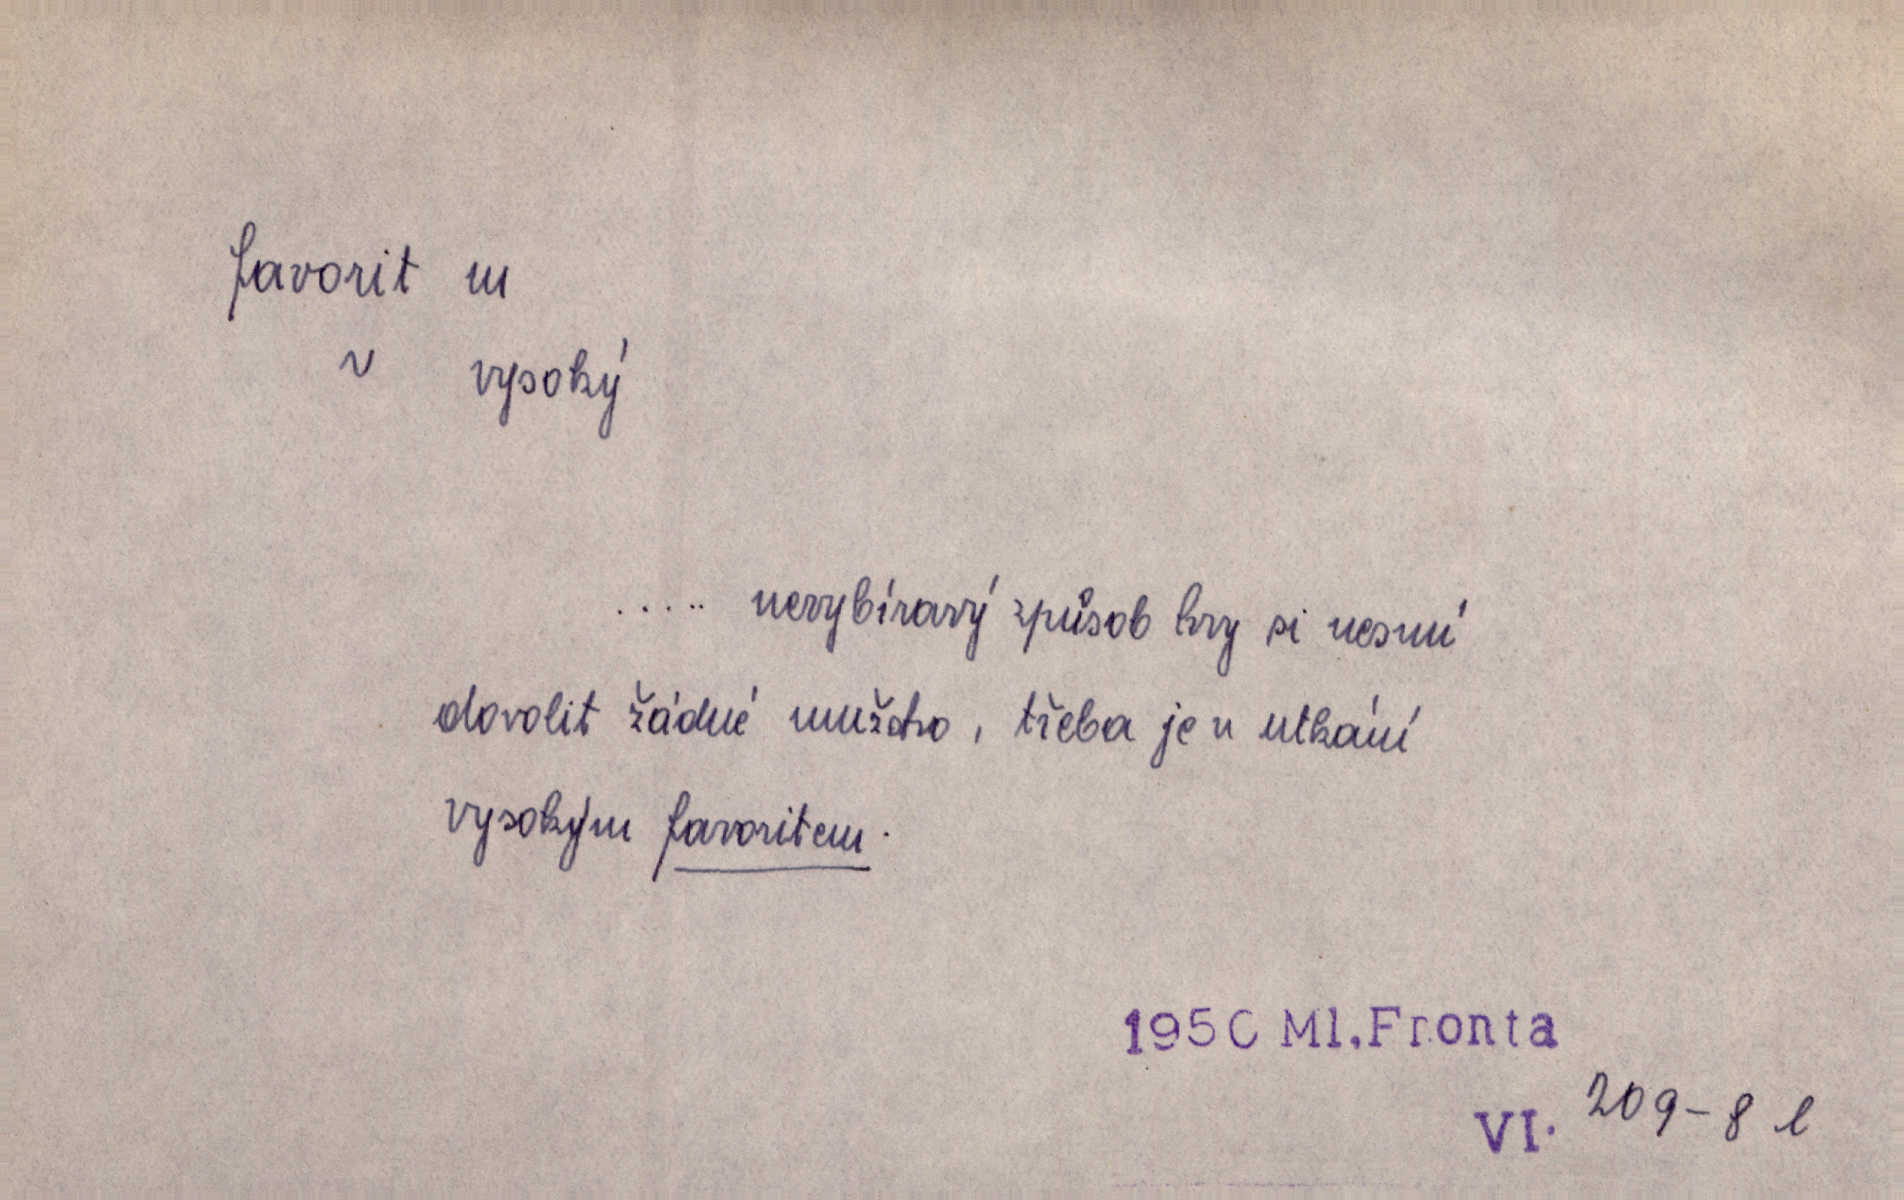 favorit m
v vysoký
..... nevybíravý způsob hry si nesmí
dovolit žádné mužstvo, třeba je v utkání
vysokým favoritem.
1950 Ml.Fronta
VI. 209-8 l